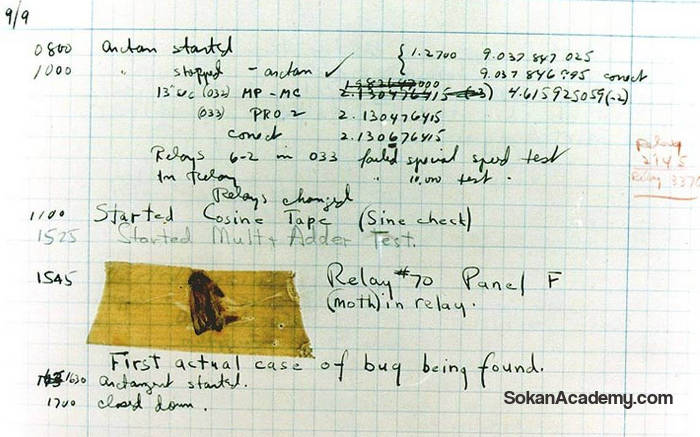 9/9
0800 arctan started { 1.2700 9.037 847 025
1000 " stopped - arctan ✓ 9.037 846 995 correct
13"uc (032) MP - MC 2.130476415 4.615925059(-2)
(033) PRO 2 2.130476415
correct 2.130676415
Relays 6-2 in 033 failed special speed test
In Relay " 10,000 test .
Relays changed
Relay
2145
Relay 3370
1100 Started Cosine Tape (Sine check)
1525 Started Mult + Adder Test.
1545 Relay #70 Panel F
(moth) in relay.
First actual case of bug being found.
1630 arctangent started.
1700 closed down.
SokanAcademy.com